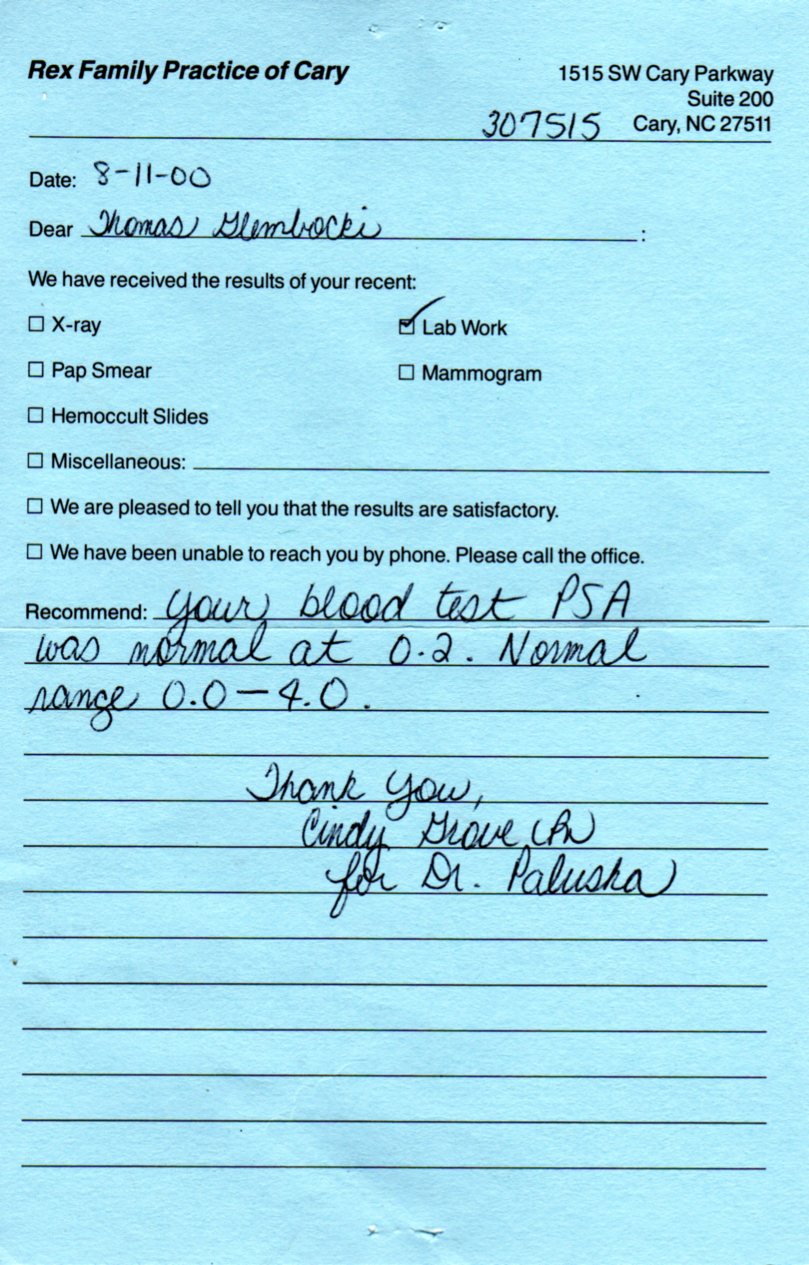 Rex Family Practice of Cary
1515 SW Cary Parkway
Suite 200
307515 Cary, NC 27511
Date: 8-11-00
Dear Thomas Glembocki :
We have received the results of your recent:
☐ X-ray
☑ Lab Work
☐ Pap Smear
☐ Mammogram
☐ Hemoccult Slides
☐ Miscellaneous:
☐ We are pleased to tell you that the results are satisfactory.
☐ We have been unable to reach you by phone. Please call the office.
Recommend: Your blood test PSA
was normal at 0.2. Normal
range 0.0-4.0.
Thank You,
Cindy Grove
for Dr. Paluska